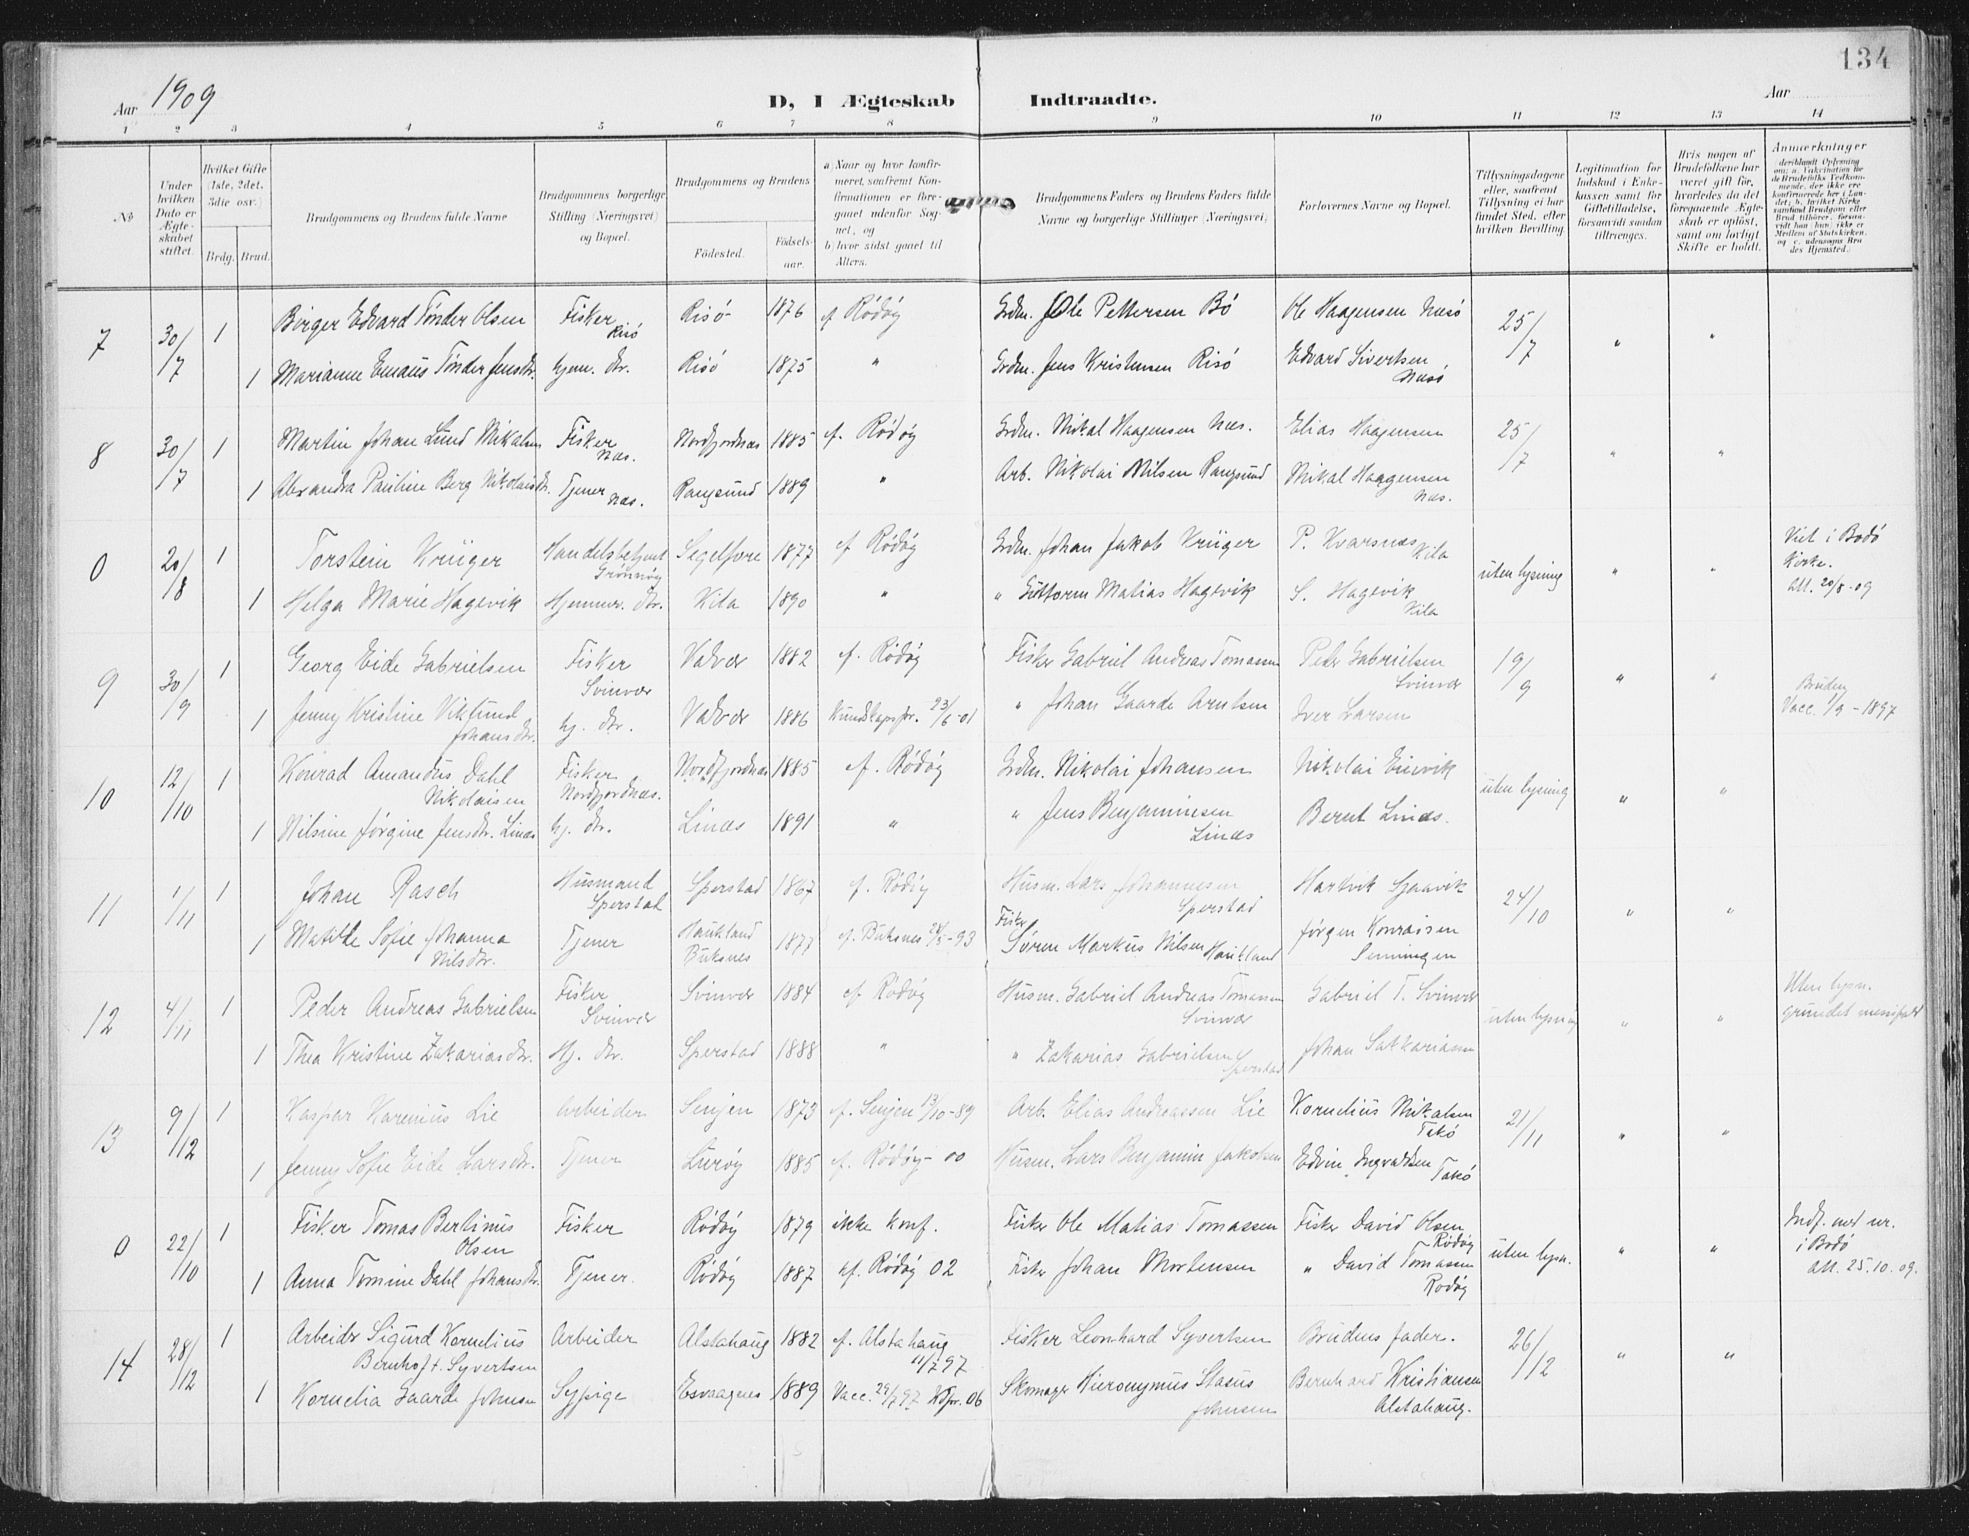 134
Aar 1909
D, I Ægteskab Indtraadte.
Aar
1 2 3 4 5 6 7 8 9 10 11 12 13 14
No
Under hvilken Dato er Ægteskabet stiftet.
Hvilket Gifte (1ste, 2det, 3die osv.)
Brdg. Brud.
Brudgommens og Brudens fulde Navne
Brudgommens borgerlige Stilling (Næringsvei) og Bopæl.
Brudgommens og Brudens
Fødested.
Fødselsaar.
a) Naar og hvor konfirmeret, saafremt Konfirmationen er foregaaet udenfor Sognet, og
b) hvor sidst gaaet til Alters.
Brudgommens Faders og Brudens Faders fulde Navne og borgerlige Stillinger (Næringsvei)
Forlovernes Navne og Bopæl.
Tillysningsdagene eller, saafremt Tillysning ei har fundet Sted, efter hvilken Bevilling.
Legitimation for Indskud i Enkekassen samt for Giftetilladelse, forsaavidt saadan tiltrænges.
Hvis nogen af Brudefolkene har været gift før, hvorledes da det foregaaende Ægteskab er opløst, samt om lovligt Skifte er holdt.
Anmærkninger
7 30/7 1 Birger Edvard Tønder Olsen Fisker Risø Risø 1876 cf Rødøy Grdm. Ole Pettersen Bø Ole Haagensen Næsø 25/7 " "
1 Marianne Emaus Tønder Jensdtr. hjem. dtr. Risø 1875 " Grdm. Jens Kristensen Risø Edvard Sivertsen Næsø
8 30/7 1 Martin Johan Lund Mikalsen Fisker Næs. Nordfjordnæs 1885 cf. Rødøy Grdm. Mikal Haagensen Næs. Elias Haagensen 25/7 " "
1 Alexandra Pauline Berg Nikolaisdtr. Tjener Næs. Rangsund 1889 " Arb. Nikolai Nilsen Rangsund Mikal Haagensen Næs.
0 20/8 1 Torstein Krüger Handelsbetjent Grønnøy Segelfore 1877 cf Rødøy Grdm. Johan Jakob Krüger P. Kvarsnæs Kila uten lysning " " Viet i Bodø Kirke. Att. 20/8-09
1 Helga Marie Hagevik Hjemmev. dtr. Kila 1890 " " Guttorm Matias Hagevik S. Hagevik Kila
9 30/9 1 Georg Eide Gabrielsen Fisker Svinvær Valvær 1882 cf. Rødøy Fisker Gabriel Andreas Tomassen Peder Gabrielsen Svinvær 19/9 " "
1 Jenny Kristine Viklund Johansdtr. hj. dtr. Valvær 1886 Kundskapspr. 23/6-01 " Johan Gaarde Arntsen Iver Larsen Bruden Vacc. 1/9-1897
10 12/10 1 Konrad Amandus Dahl Nikolaisen Fisker Nordfjordnæs. Nordfjordnæs 1885 cf. Rødøy Grdm. Nikolai Johansen Nikolai Einvik uten lysning " "
1 Nilsine Jørgine Jensdtr. Linæs hj. dtr. Linæs 1891 " " Jens Benjaminsen Linæs Bernt Linæs.
11 1/11 1 Johan Rasch Husmand Sperstad Sperstad 1867 cf. Rødøy Husm. Lars Johannesen Sperstad Hartvik Gjaavik 24/10 " "
1 Matilde Sofie Johanna Nilsdtr. Tjener Haukland Buksnes 1877 cf. Buksnes 28/5-93 Fisker Søren Markus Nilsen Haukland Jørgen Konradsen Senningen
12 4/11 1 Peder Andreas Gabrielsen Fisker Svinvær Svinvær 1884 cf Rødøy Husm. Gabriel Andreas Tomassen Svinvær Gabriel T. Svinvær uten lysning " " Uten lysn. grundet messefald
1 Thea Kristine Zakariasdtr. Hj. dtr. Sperstad 1888 " " Zakarias Gabrielsen Sperstad Johan Sakkariassen
13 9/12 1 Kaspar Karenius Lie Arbeider Senjen 1873 cf. Senjen 13/10-89 Arb. Elias Andreassen Lie Kornelius Mikalsen Takø 21/11 " "
1 Jenny Sofie Eide Larsdtr. Tjener Lurøy 1885 cf. Rødøy-00 Husm. Lars Benjamin Jakobsen Edvin Ingvaldsen Takø
0 22/10 1 Fisker Tomas Bertinus Olsen Fisker Rødøy 1879 ikke konf. Fisker Ole Matias Tomassen Fisker David Olsen Rødøy uten lysn. " " Indf. med nr. i Bodø Att. 25.10.09.
1 Anna Tomine Dahl Johansdtr. Tjener. Rødøy 1887 cf. Rødøy 02 Fisker Johan Mortensen " David Tomassen Rødøy
14 28/12 1 Arbeider Sigurd Kornelius Bernhoft Syvertsen Arbeider Alstahaug 1882 cf. Alstahaug 11/7 97 Fisker Leonhard Syvertsen Brudens fader. 26/12 " "
1 Kornelia Gaarde Johnsen Sypige Esvaagnes 1889 Vacc. 29/7 97 Kdpr. 06 Skomager Hieronymus Stasius Johnsen Bernhard Kristiansen Alstahaug.